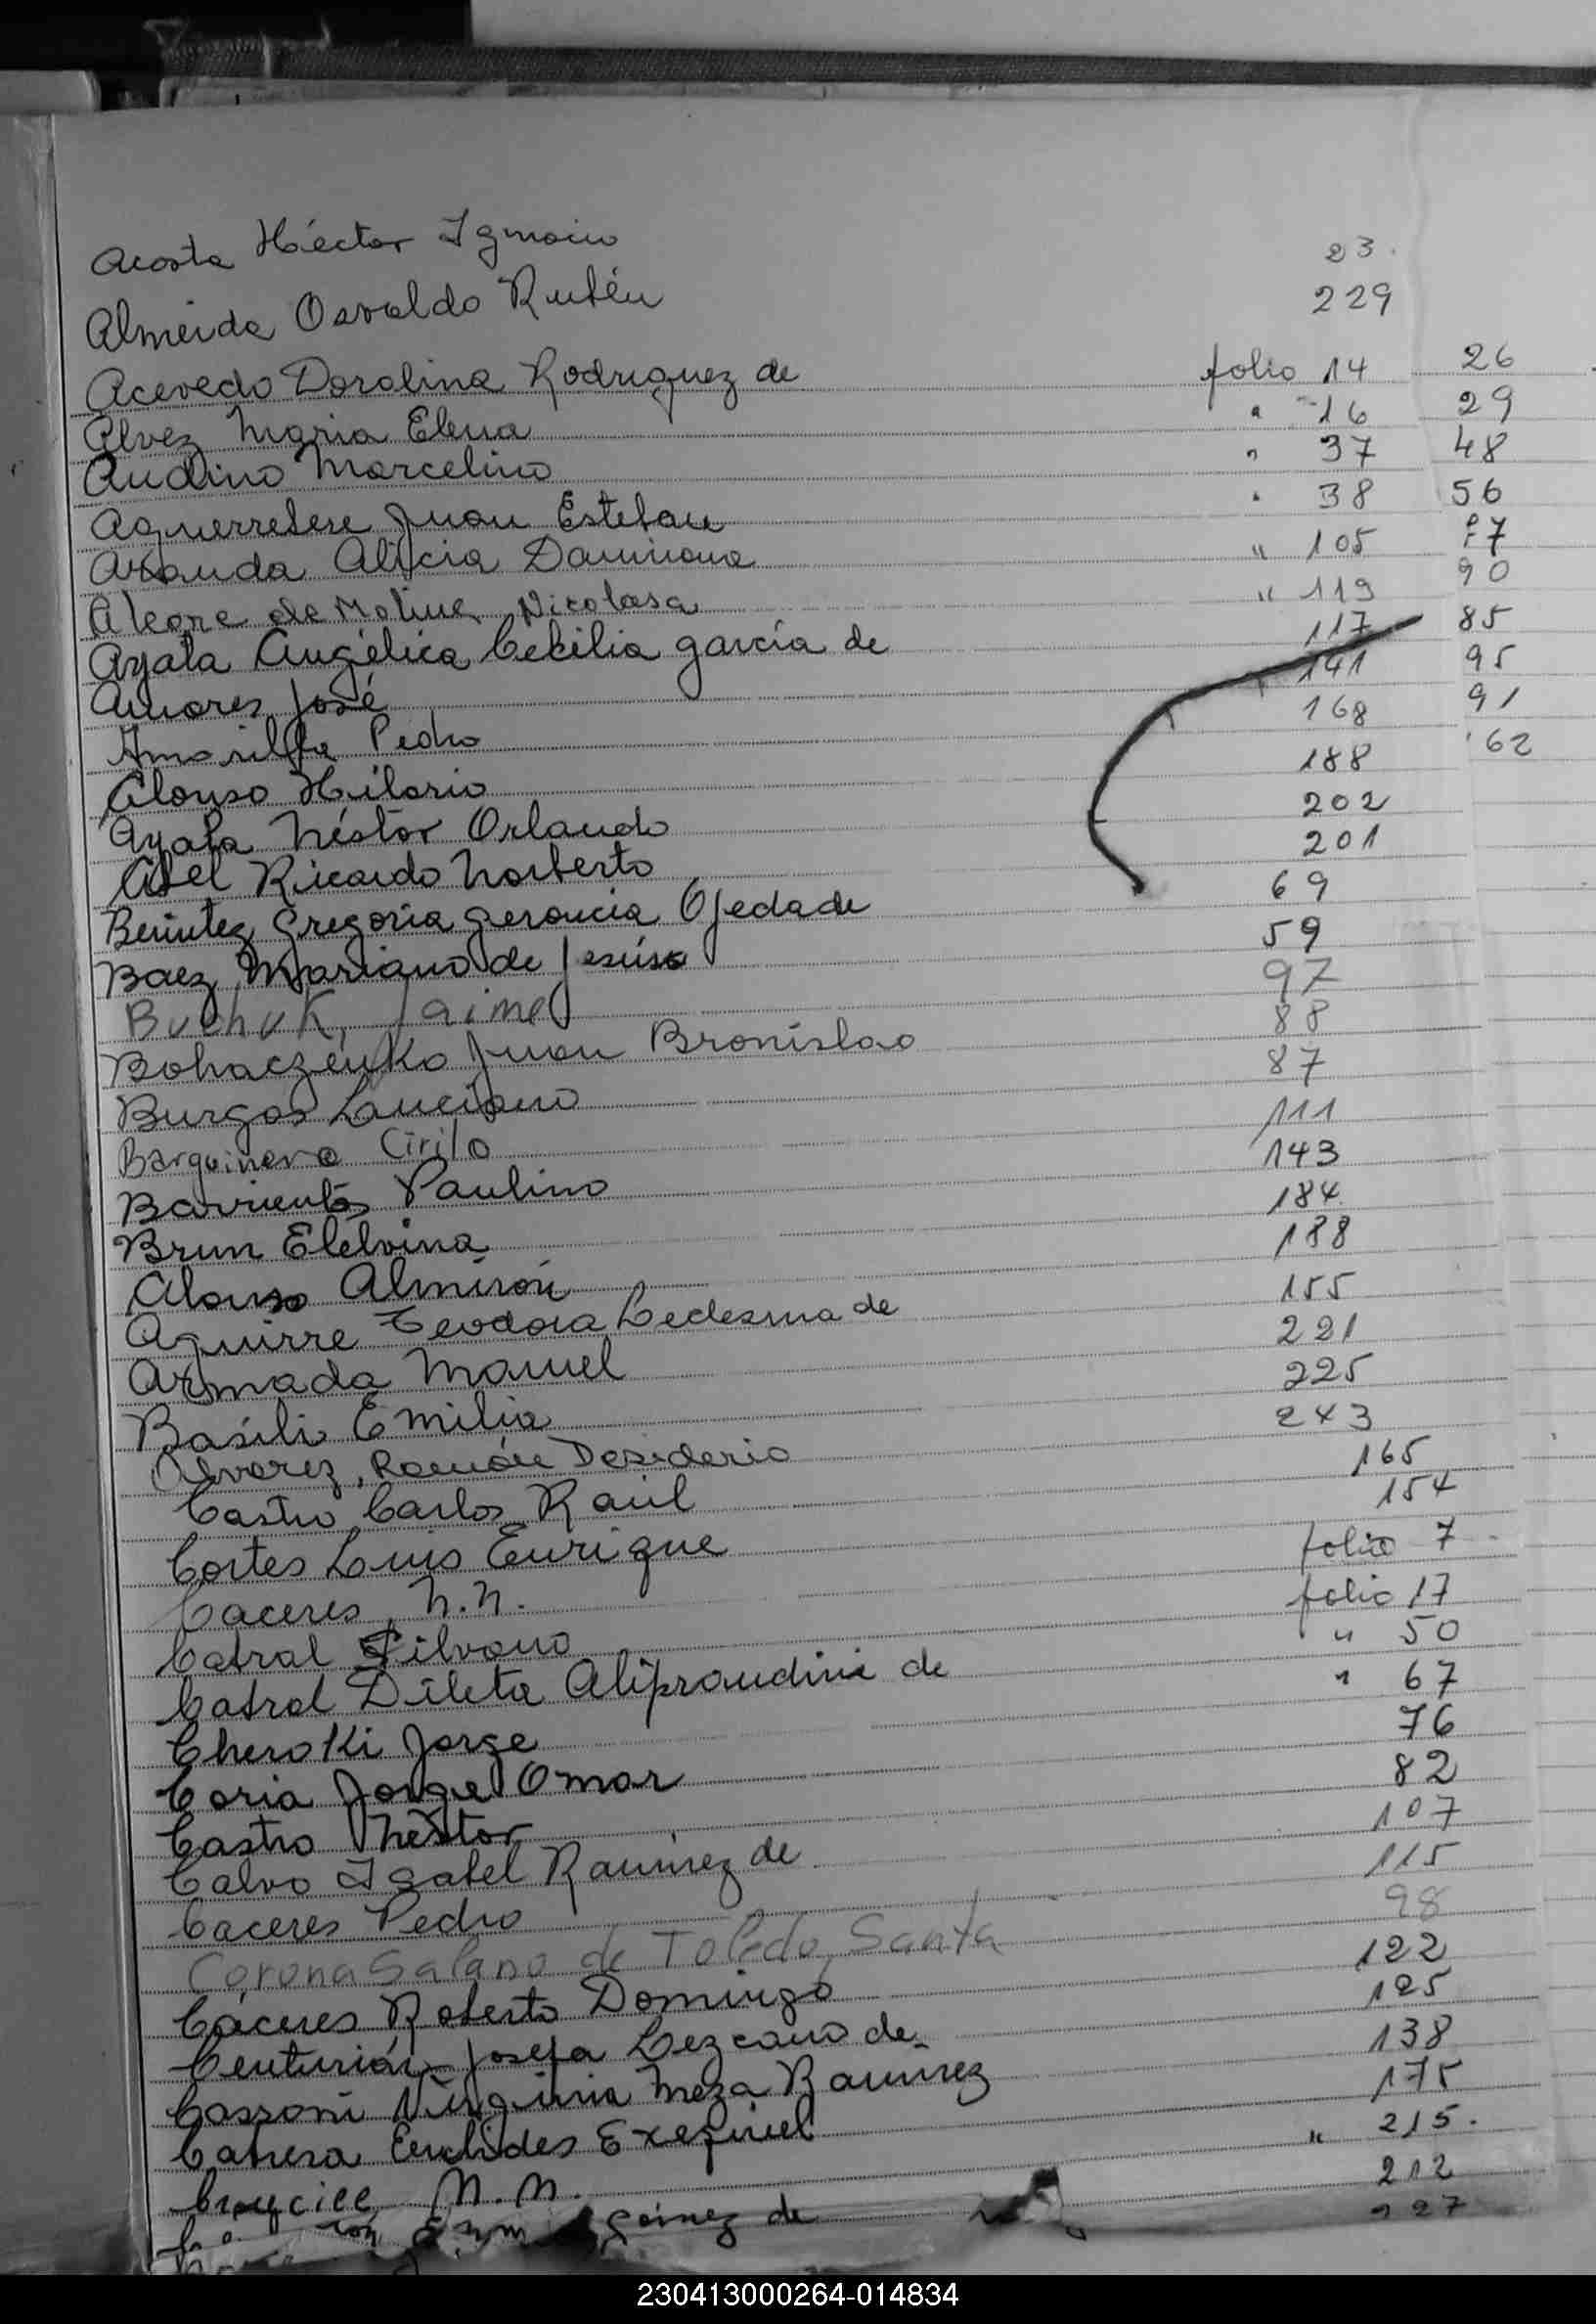 Acosta Héctor Ignacio 23.
Almeida Osvaldo Rubén 229
Acevedo Doralina Rodriguez de folio 14 26
Alvez Maria Elena " 16 29
Audino Marcelino " 37 48
Aguerrebere Juan Esteban " 38 56
Aranda Alicia Damiana " 105 87
Alegre de Molina Nicolasa " 119 90
Ayala Angélica Cecilia garcía de 117 85
Amores José 141 95
Amarilla Pedro 168 91
Alonso Hilario 188 62
Ayala Néstor Orlando 202
Abel Ricardo Norberto 201
Benitez Gregoria Geroncia Ojeda de 69
Baez Mariano de Jesús 59
Buchuk, Jaime 97
Bohaczenko Juan Bronislao 88
Burgos Lauciano 87
Barquinero Cirilo 111
Barrientos Paulino 143
Brun Elelvina 184
Alonso Almirón 188
Aguirre Teodora Ledesma de 155
Armada Manuel 221
Basili Emilia 225
Alvarez, Ramón Desiderio 243
Castro Carlos Raúl 165
Cortes Luis Enrique 154
Caceres, N.N. folio 7
Cabral Silvano folio 17
Cabral Dileta Aliprandini de " 50
Cheroki Jorge " 67
Coria Jorge Omar 76
Castro Néstor 82
Calvo Isabel Ramirez de 107
Caceres Pedro 115
Corona Salano de Toledo, Santa 98
Cáceres Roberto Domingo 122
Centurión Josefa Lezcano de 125
Cassoni Virginia Meza Ramirez 138
Cabrera Euclides Exequiel 175
N.N. " 215.
Gómez de 212
227
230413000264-014834